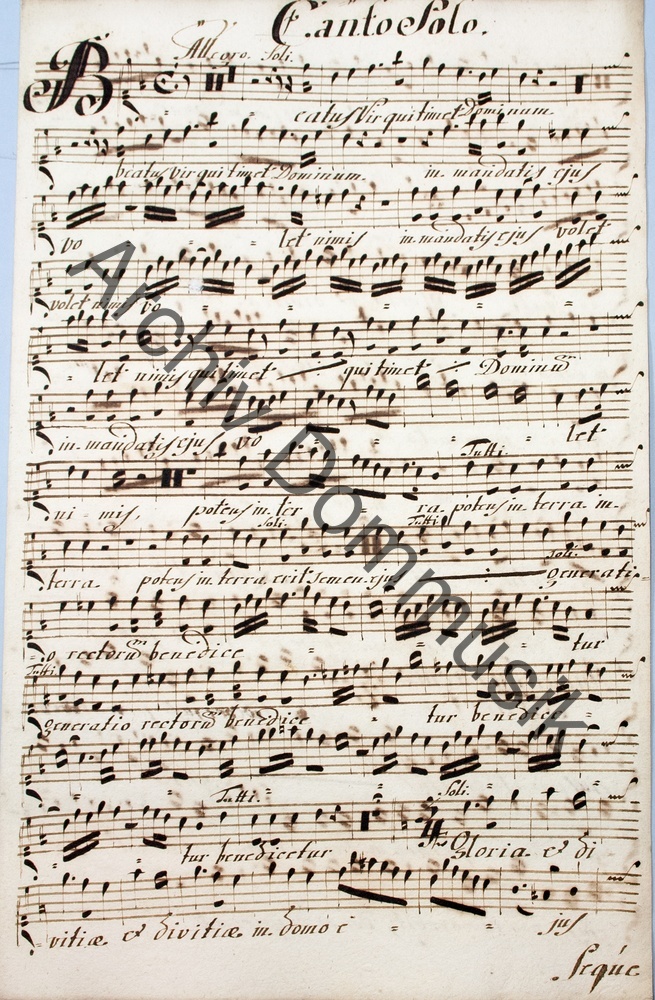 Canto Solo.
Allegro. Soli.
Beatus Vir qui timet Dominum
beatus vir qui timet Dominum. in mandatis ejus
vo - - let nimis in mandatis ejus volet
volet nimis vo - - - - -
- let nimis qui timet qui timet Dominum
in mandatis ejus vo - - - - let
Tutti.
ni - mis, potens in ter - ra potens in terra in
Soli. Tutti. Soli.
terra potens in terra erit semen ejus generati-
o rectorum benedice - - - tur
Tutti.
generatio rectorum benedice - tur benedice -
Tutti. Soli.
tur benedicetur Gloria et di
vitiæ et divitiæ in domo e - - - jus
Seque
Archiv Dommusik